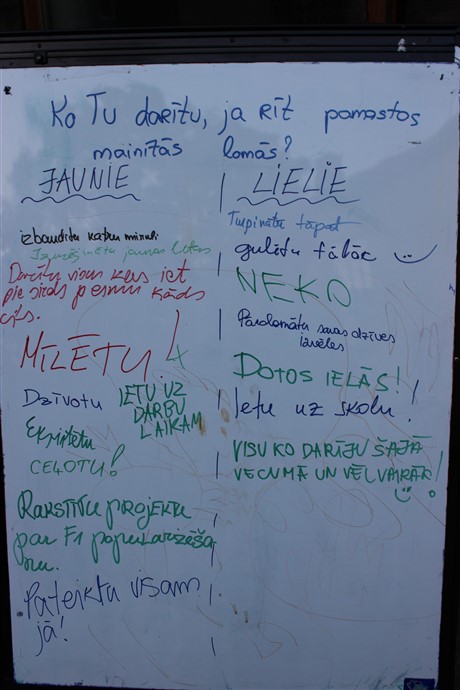 Ko Tu darītu, ja rīt pamostos
mainītās lomās?
JAUNIE
izbaudītu katru minūti
Darītu visu kas iet
pie sirds pirms kāds
cits.
MĪLĒTU!
Dzīvotu
IETU UZ
DARBU
LAIKAM
Eksistētu
CEĻOTU!
Rakstītu projektu
par F1 popularizēša-
nu.
Pateiktu visam
jā!
LIELIE
Turpinātu tāpat
gulētu tālāk
NEKO
Pārdomātu savas dzīves
izvēles
DOTOS IELĀS!
Ietu uz skolu!
VISU KO DARĪJU ŠAJĀ
VECUMĀ UN VĒL VAIRĀK!